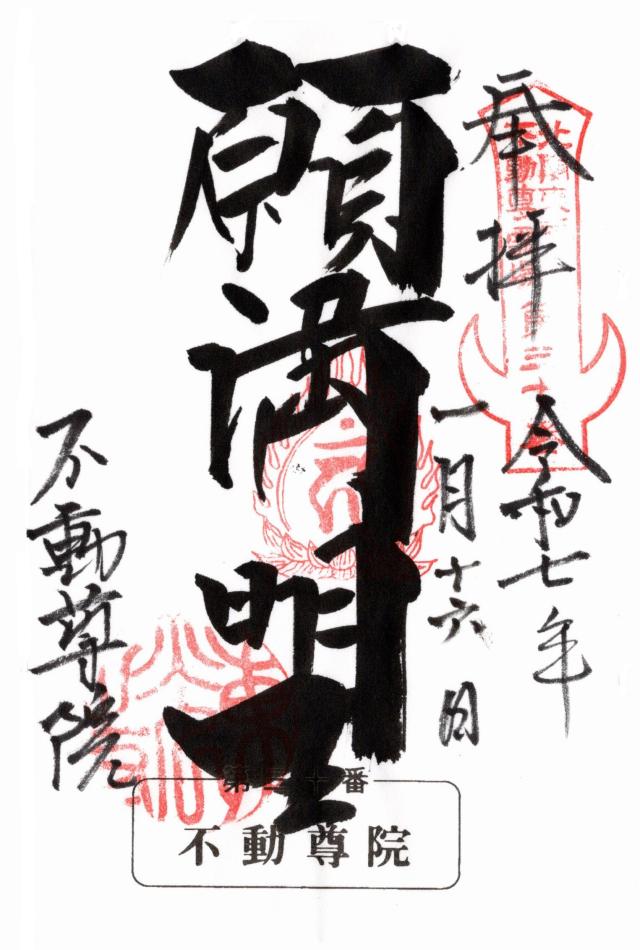 奉拝
令和七年
一月十六日
願満明王
不動尊院
第三十番
不動尊院